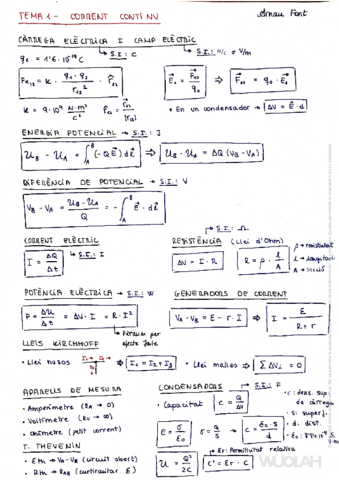 TEMA 1 - CORRENT CONTINU
Arnau Font
CÀRREGA ELÈCTRICA I CAMP ELÈCTRIC
q_e = 1'6·10^-19 C → S.I.: C
S.I.: N/C o V/m
F_e12 = K · (q_1·q_2)/(r_12^2) · r̂_12
E_1 = F_10/q_0 ⇒ F_10 = q_0 · E_1
K = 9·10^9 N·m²/C² r̂_12 = r_12/|r_12|
• En un condensador → ΔV = E·d
ENERGIA POTENCIAL → S.I.: J
U_B - U_A = ∫_A^B (-QE) dl ⇒ U_B - U_A = ΔQ (V_B - V_A)
DIFERÈNCIA DE POTENCIAL → S.I.: V
V_B - V_A = (U_B - U_A)/Q = -∫_A^B E · dl
CORRENT ELÈCTRIC
I = ΔQ/Δt → S.I.: I
RESISTÈNCIA (Llei d'Ohm) → S.I.: Ω
ΔV = I · R
R = ρ · l/A
ρ → resistivitat
l → longitud
A → secció
POTÈNCIA ELÈCTRICA → S.I.: W
P = ΔU/Δt = ΔV · I = R · I²
Pèrdues per efecte Joule
GENERADORS DE CORRENT
V_A - V_B = E - r · I ⇒ I = E/(R + r)
LLEIS KIRCHHOFF
• Llei nusos I_1 = I_2 + I_3
• Llei malles ⇒ ΣΔV_i = 0
APARELLS DE MESURA
• Amperímetre (R_A → 0)
• Voltímetre (R_V → ∞)
• Ohímetre (petit corrent)
T. THEVENIN
• E_Th → V_A - V_B (circuit obert)
• R_Th → R_AB (curtcircuitar E)
CONDENSADORS → S.I.: F
• Capacitat C = Q/ΔV
E = σ/ε_0 σ = Q/S C = ε_0·S/d
U = Q²/2C C' = εr · C
εr: Permitivitat relativa
• σ: dens. sup. de càrrega
• S: superf.
• d: dist.
WUOLAH